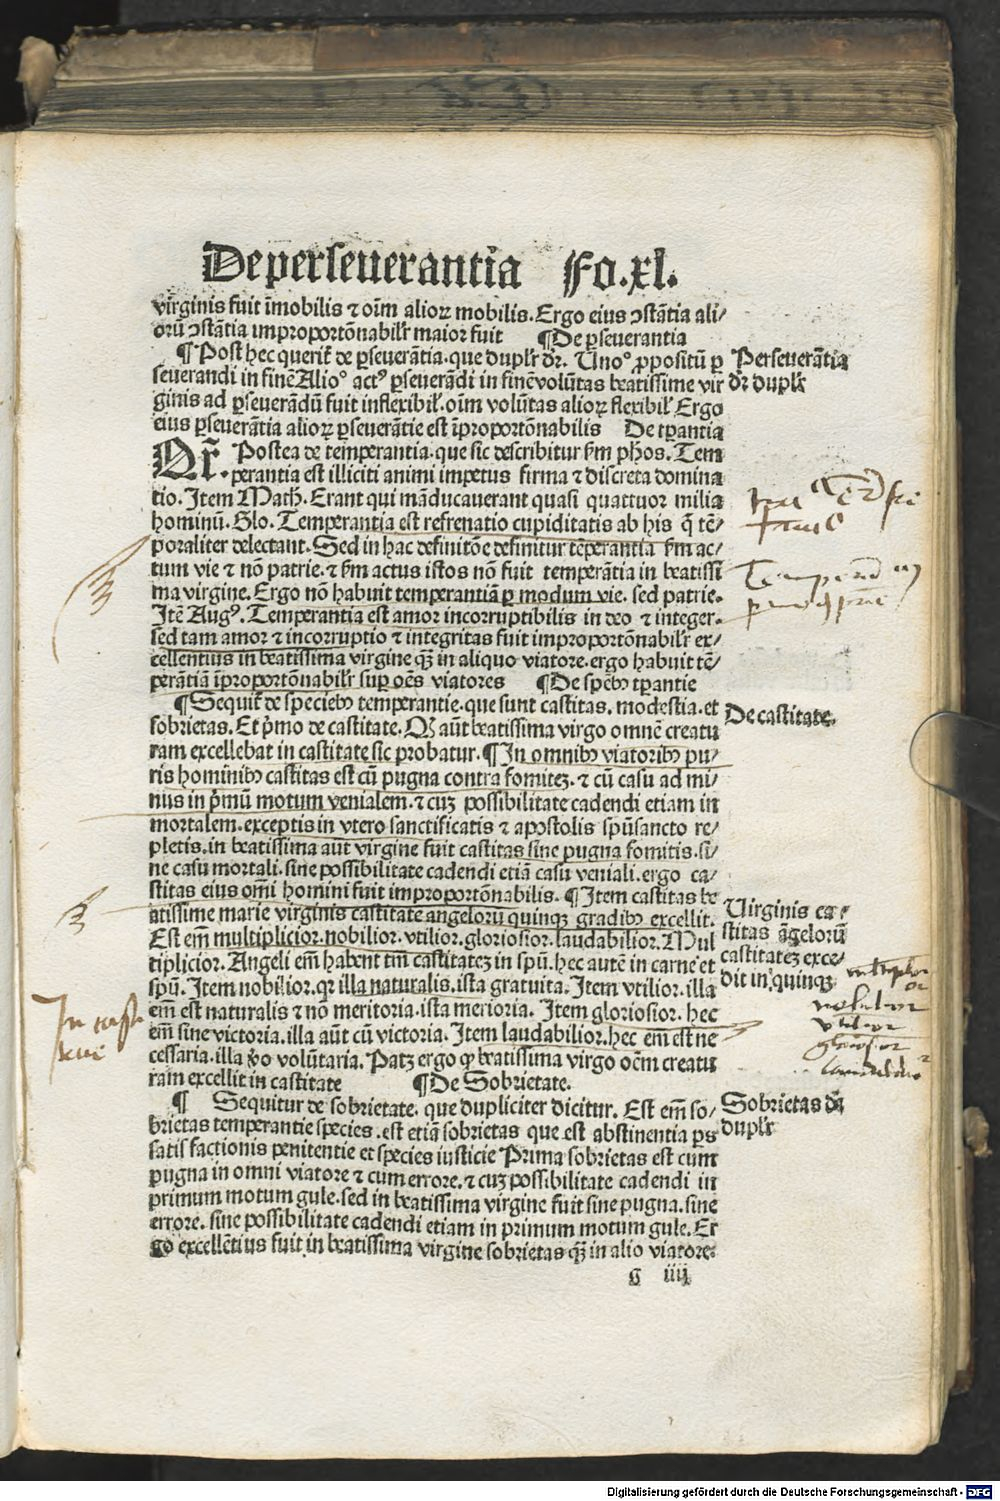 De perseuerantia Fo.xl.
virginis fuit īmobilis ⁊ oīm alioꝝ mobilis. Ergo eius ↄstātia ali/
orū ↄstātia improportōnabilr̄ maior fuit ¶De ꝑseuerantia
¶Post hec querit̄ de ꝑseuerātia. que duplr̄ dr̄. Unoº ꝓpositū ꝑ
seuerandi in finē Alioº actꝰ ꝑseuerādi in finē volūtas beatissime vir
ginis ad ꝑseuerādū fuit inflexibil̄. oīm volūtas alioꝝ flexibil̄ Ergo
eius ꝑseuerātia alioꝝ ꝑseuerātie est īproportōnabilis De tꝑantia
Qr̄. Postea de temperantia. que sic describitur ẜm phōs. Tem
perantia est illiciti animi impetus firma ⁊ discreta domina
tio. Item Math̄. Erant qui māducauerant quasi quattuor milia
hominū. Glo. Temperantia est refrenatio cupiditatis ab his q̄ tē/
poraliter delectant. Sed in hac definitōe definitur tēperantia ẜm ac/
tum vie ⁊ nō patrie. ⁊ ẜm actus istos nō fuit temperātia in beatissi
ma virgine. Ergo nō habuit temperantiā ꝑ modum vie. sed patrie.
Itē Augꝰ. Temperantia est amor incorruptibilis in deo ⁊ integer.
sed tam amor ⁊ incorruptio ⁊ integritas fuit improportōnabilr̄ ex/
cellentius in beatissima virgine qꝫ in aliquo viatore. ergo habuit tē/
perātiā īproportōnabilr̄ suꝑ oēs viatores ¶De spēbꝰ tꝑantie
¶Sequit̄ de speciebꝰ temperantie. que sunt castitas. modestia. et
sobrietas. Et pͥmo de castitate. Qꝫ aūt beatissima virgo omnē creatu
ram excellebat in castitate sic probatur. ¶In omnibꝰ viatoribꝰ pu/
ris hominibꝰ castitas est cū pugna contra fomiteꝫ. ⁊ cū casu ad mi/
nus in pͥmū motum venialem. ⁊ cuꝫ possibilitate cadendi etiam in
mortalem. exceptis in vtero sanctificatis ⁊ apostolis spūsancto re/
pletis. in beatissima aūt virgine fuit castitas sine pugna fomitis. si/
ne casu mortali. sine possibilitate cadendi etiā casu veniali. ergo ca/
stitas eius omī homini fuit improportōnabilis. ¶Item castitas be
atissime marie virginis castitatē angelorū quinqꝫ gradibꝰ excellit.
Est em̄ multiplicior. nobilior. vtilior. gloriosior. laudabilior. Mul
tiplicior. Angeli em̄ habent tm̄ castitateꝫ in spū. hec autē in carne et
spū. Item nobilior. qr illa naturalis. ista gratuita. Item vtilior. illa
em̄ est naturalis ⁊ nō meritoria. ista merioria. Item gloriosior. hec
em̄ sine victoria. illa aūt cū victoria. Item laudabilior. hec em̄ est ne
cessaria. illa ꝟo volūtaria. Patꝫ ergo ꝙ beatissima virgo oēm creatu
ram excellit in castitate ¶De Sobrietate.
¶ Sequitur de sobrietate. que dupliciter dicitur. Est em̄ so/
brietas temperantie species. est etiā sobrietas que est abstinentia ꝑs
satisfactionis penitentie et species iusticie Prima sobrietas est cum
pugna in omni viatore ⁊ cum errore. ⁊ cuꝫ possibilitate cadendi in
primum motum gule. sed in beatissima virgine fuit sine pugna. sine
errore. sine possibilitate cadendi etiam in primum motum gule. Er
go excellētius fuit in beatissima virgine sobrietas qꝫ in alio viatore.
G iiij
Perseuerātia
dr̄ duplr̄
De castitate.
Uirginis ca/
stitas āgelorū
castitateꝫ exce/
dit in quinqꝫ
multiplior
nobilior
vtilior
gloriosior
laudabilior
Sobrietas dr̄
duplr̄
Digitalisierung gefördert durch die Deutsche Forschungsgemeinschaft - DFG